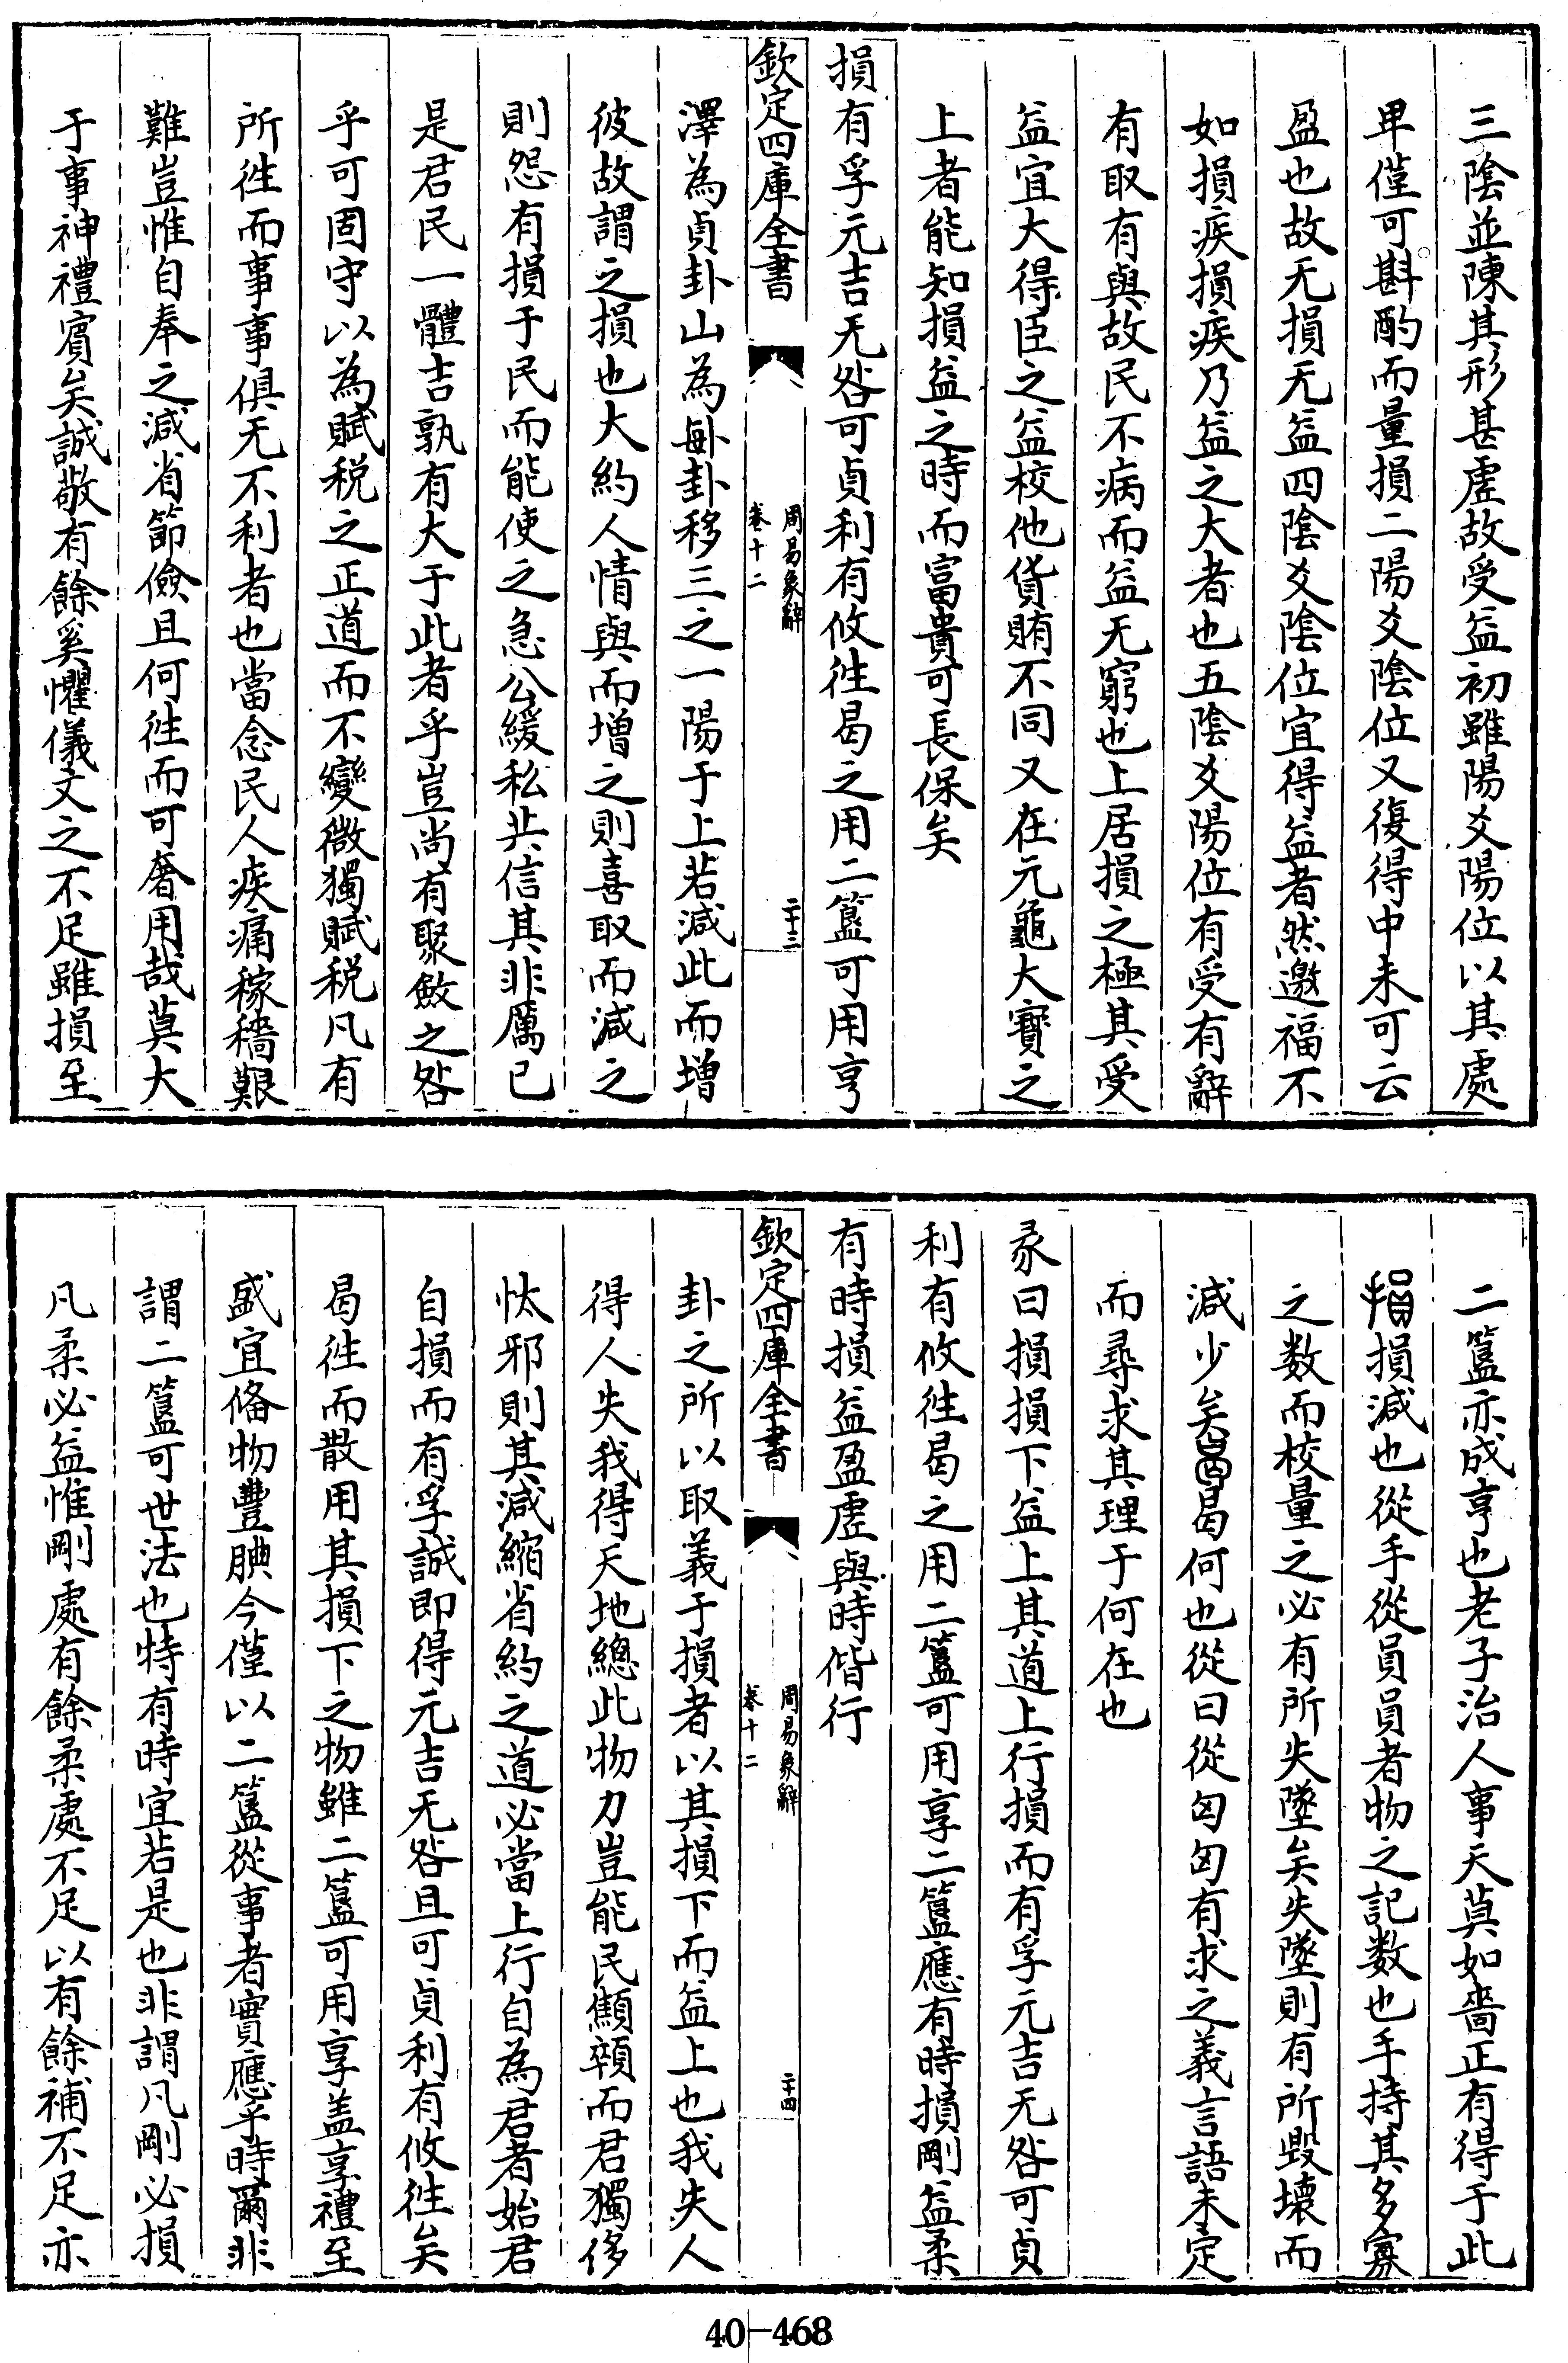 三陰並陳其形甚虛故受益初雖陽爻陽位以其處
卑僅可斟酌而量損二陽爻陰位又復得中未可云
盈也故无損无益四陰爻陰位宜得益者然邀福不
如損疾損疾乃益之大者也五陰爻陽位有受有辭
有取有與故民不病而益无窮也上居損之極其受
益宜大得臣之益校他貨賄不同又在元龜大寶之
上者能知損益之時而富貴可長保矣
損有孚元吉无咎可貞利有攸徃曷之用二簋可用亨
欽定四庫全書
周易象辭
卷十二
二十三
澤為貞卦山為𠧩卦移三之一陽于上若減此而增
彼故謂之損也大約人情與而增之則喜取而減之
則怨有損于民而能使之急公緩私共信其非厲已
是君民一體吉孰有大于此者乎豈尚有聚斂之咎
乎可固守以為賦税之正道而不變微獨賦税凡有
所徃而事事俱无不利者也當念民人疾痛稼穡艱
難豈惟自奉之減省節儉且何徃而可奢用哉莫大
于事神禮賓矣誠敬有餘奚懼儀文之不足雖損至
二簋亦成亨也老子治人事天莫如嗇正有得于此
損減也從手從員員者物之記数也手持其多寡
之数而校量之必有所失墜矣失墜則有所毀壞而
減少矣曷何也從曰從匃匃有求之義言語未定
而尋求其理于何在也
彖曰損損下益上其道上行損而有孚元吉无咎可貞
利有攸徃曷之用二簋可用享二簋應有時損剛益柔
有時損益盈虛與時偕行
欽定四庫全書
周易象辭
卷十二
二十四
卦之所以取義于損者以其損下而益上也我失人
得人失我得天地總此物力豈能民顦顇而君獨侈
忲邪則其減縮省約之道必當上行自為君者始君
自損而有孚誠即得元吉无咎且可貞利有攸徃矣
曷徃而散用其損下之物雖二簋可用享盖享禮至
盛宜俻物豐腆今僅以二簋從事者實應乎時爾非
謂二簋可世法也特有時宜若是也非謂凡剛必損
凡柔必益惟剛處有餘柔處不足以有餘補不足亦
40—468